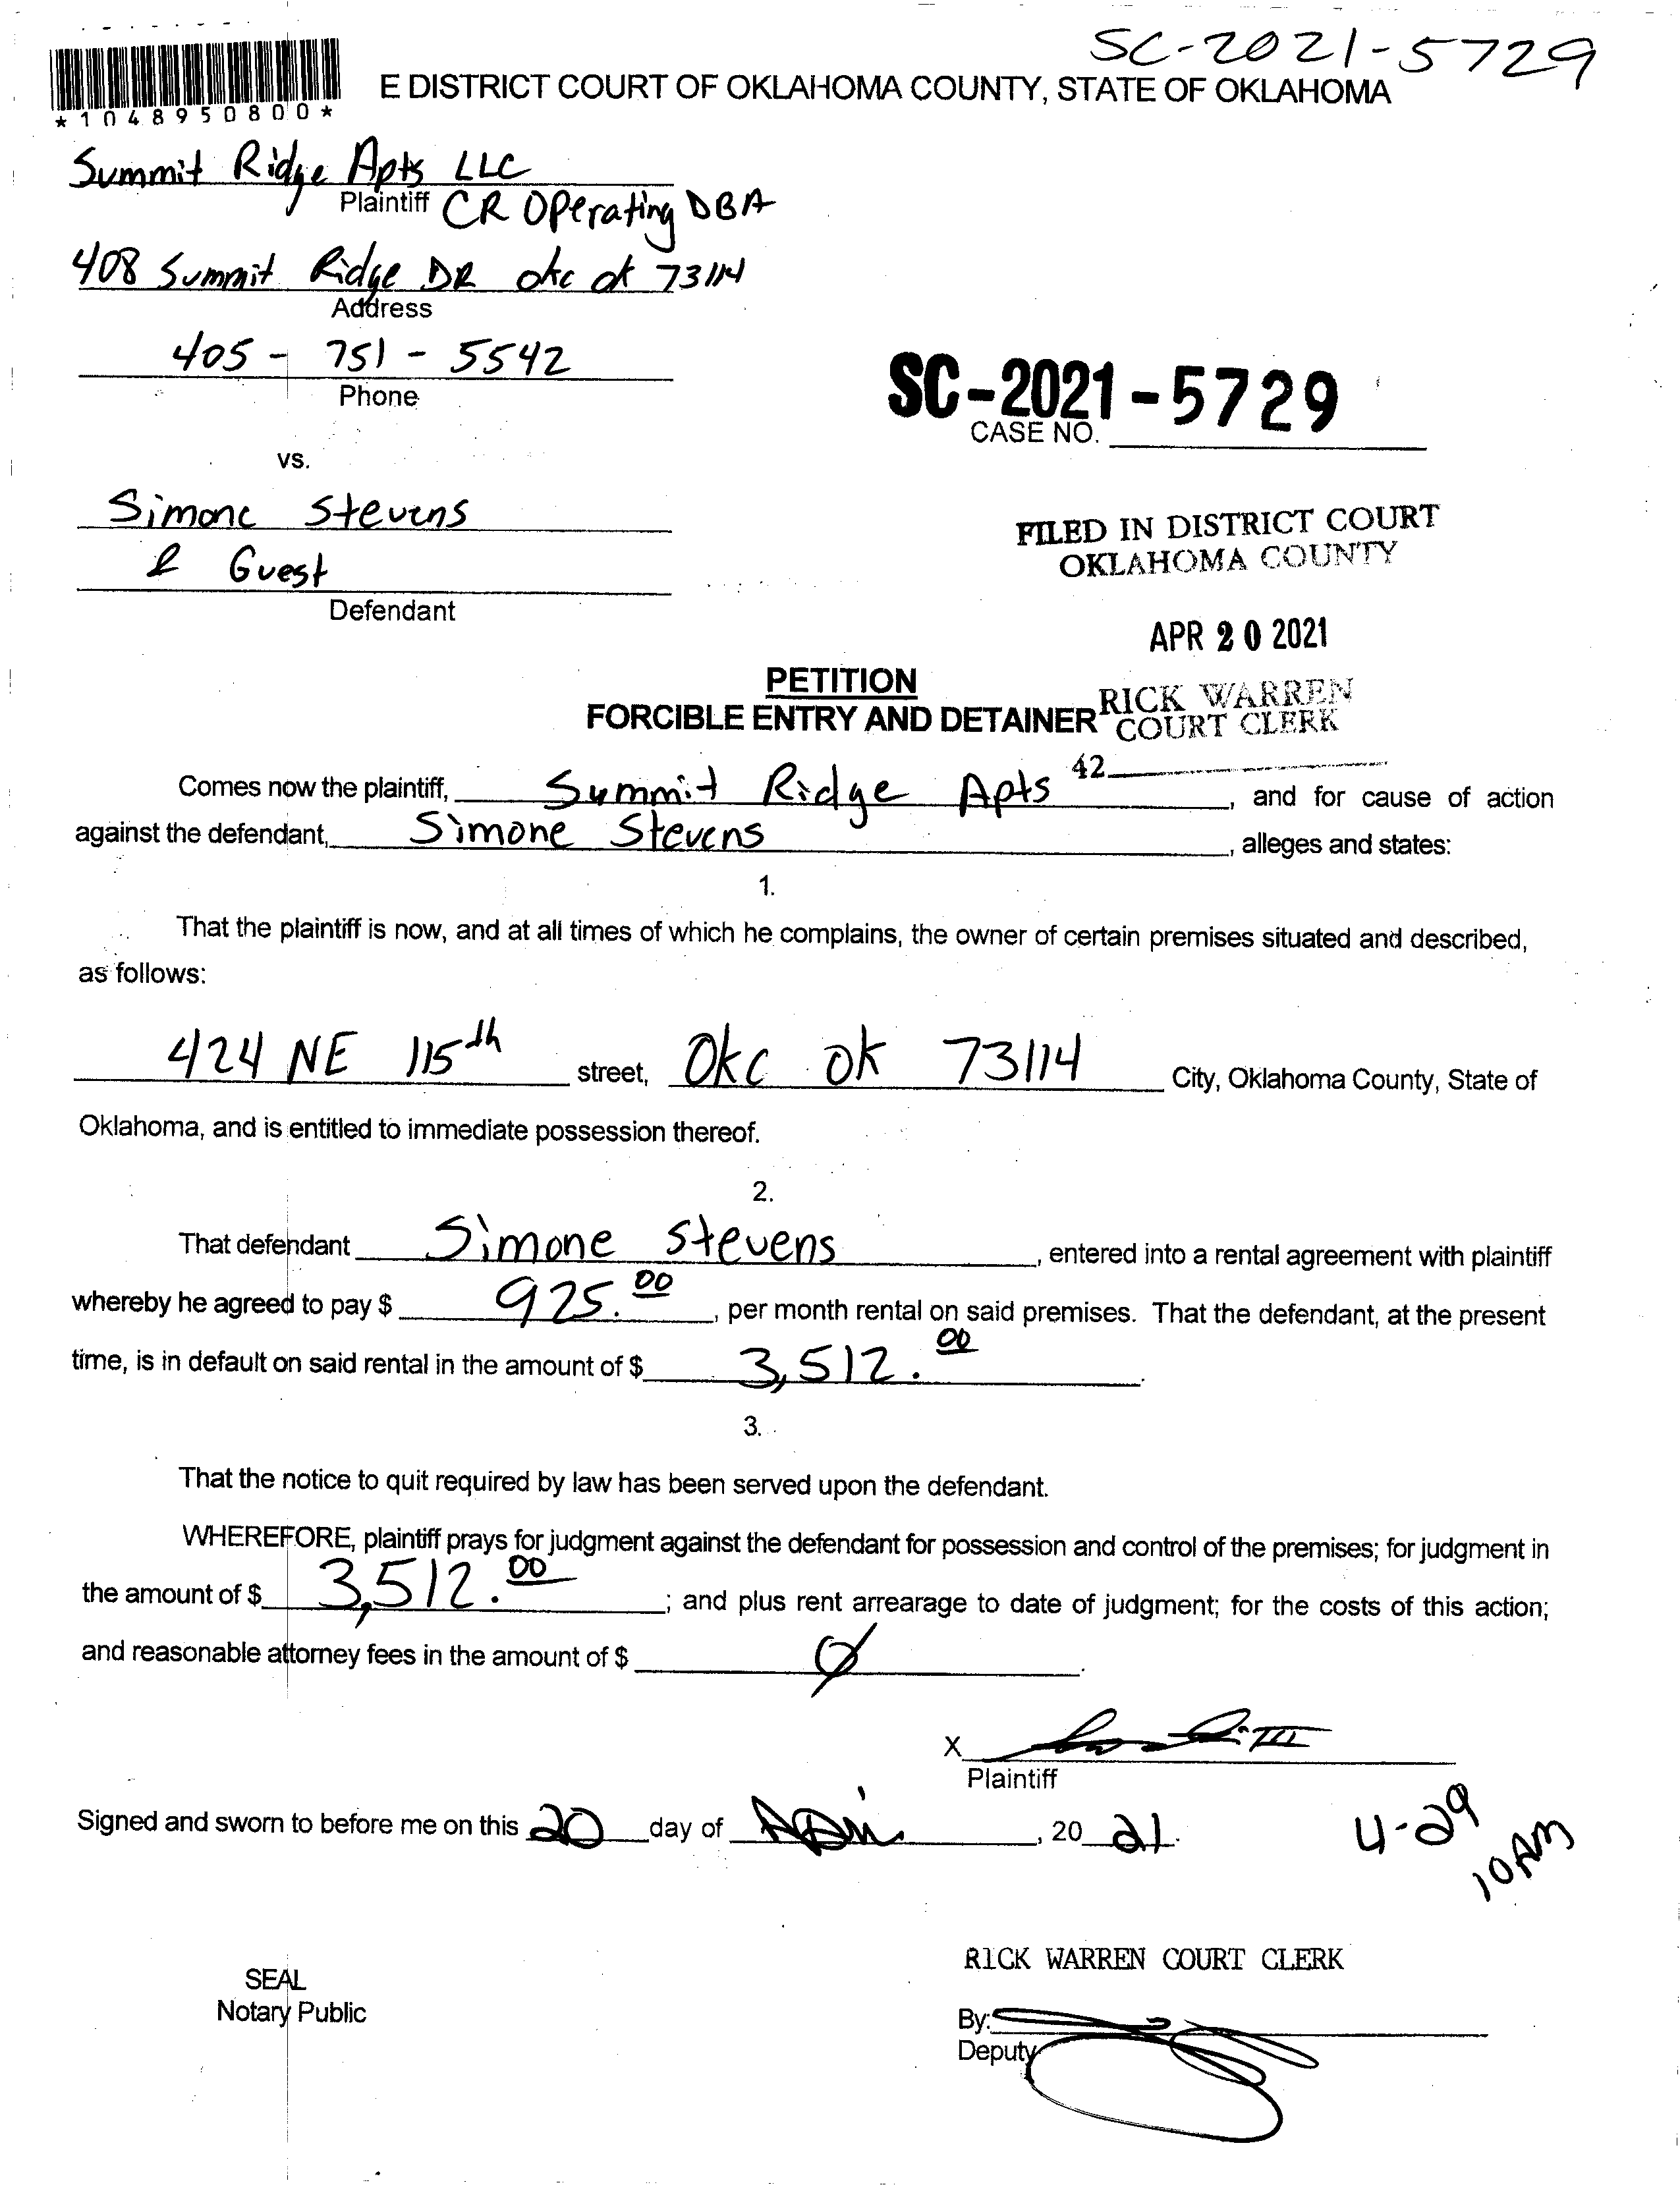 SC-2021-5729
*1048950800*
E DISTRICT COURT OF OKLAHOMA COUNTY, STATE OF OKLAHOMA
Summit Ridge Apts LLC
Plaintiff CR Operating DBA
408 Summit Ridge DR okc ok 73114
Address
405-751-5542
Phone
SC-2021-5729
CASE NO.
vs.
Simone Stevens
& Guest
Defendant
FILED IN DISTRICT COURT
OKLAHOMA COUNTY
APR 20 2021
RICK WARREN
COURT CLERK
42
PETITION
FORCIBLE ENTRY AND DETAINER
Comes now the plaintiff, Summit Ridge Apts, and for cause of action
against the defendant, Simone Stevens, alleges and states:
1.
That the plaintiff is now, and at all times of which he complains, the owner of certain premises situated and described,
as follows:
424 NE 115th street, Okc ok 73114 City, Oklahoma County, State of
Oklahoma, and is entitled to immediate possession thereof.
2.
That defendant Simone Stevens, entered into a rental agreement with plaintiff
whereby he agreed to pay $ 925.00, per month rental on said premises. That the defendant, at the present
time, is in default on said rental in the amount of $ 3,512.00.
3.
That the notice to quit required by law has been served upon the defendant.
WHEREFORE, plaintiff prays for judgment against the defendant for possession and control of the premises; for judgment in
the amount of $ 3,512.00; and plus rent arrearage to date of judgment; for the costs of this action;
and reasonable attorney fees in the amount of $ Ø.
X
Plaintiff
Signed and sworn to before me on this 20 day of April, 2021.
4-29
10AM
RICK WARREN COURT CLERK
SEAL
Notary Public
By:
Deputy